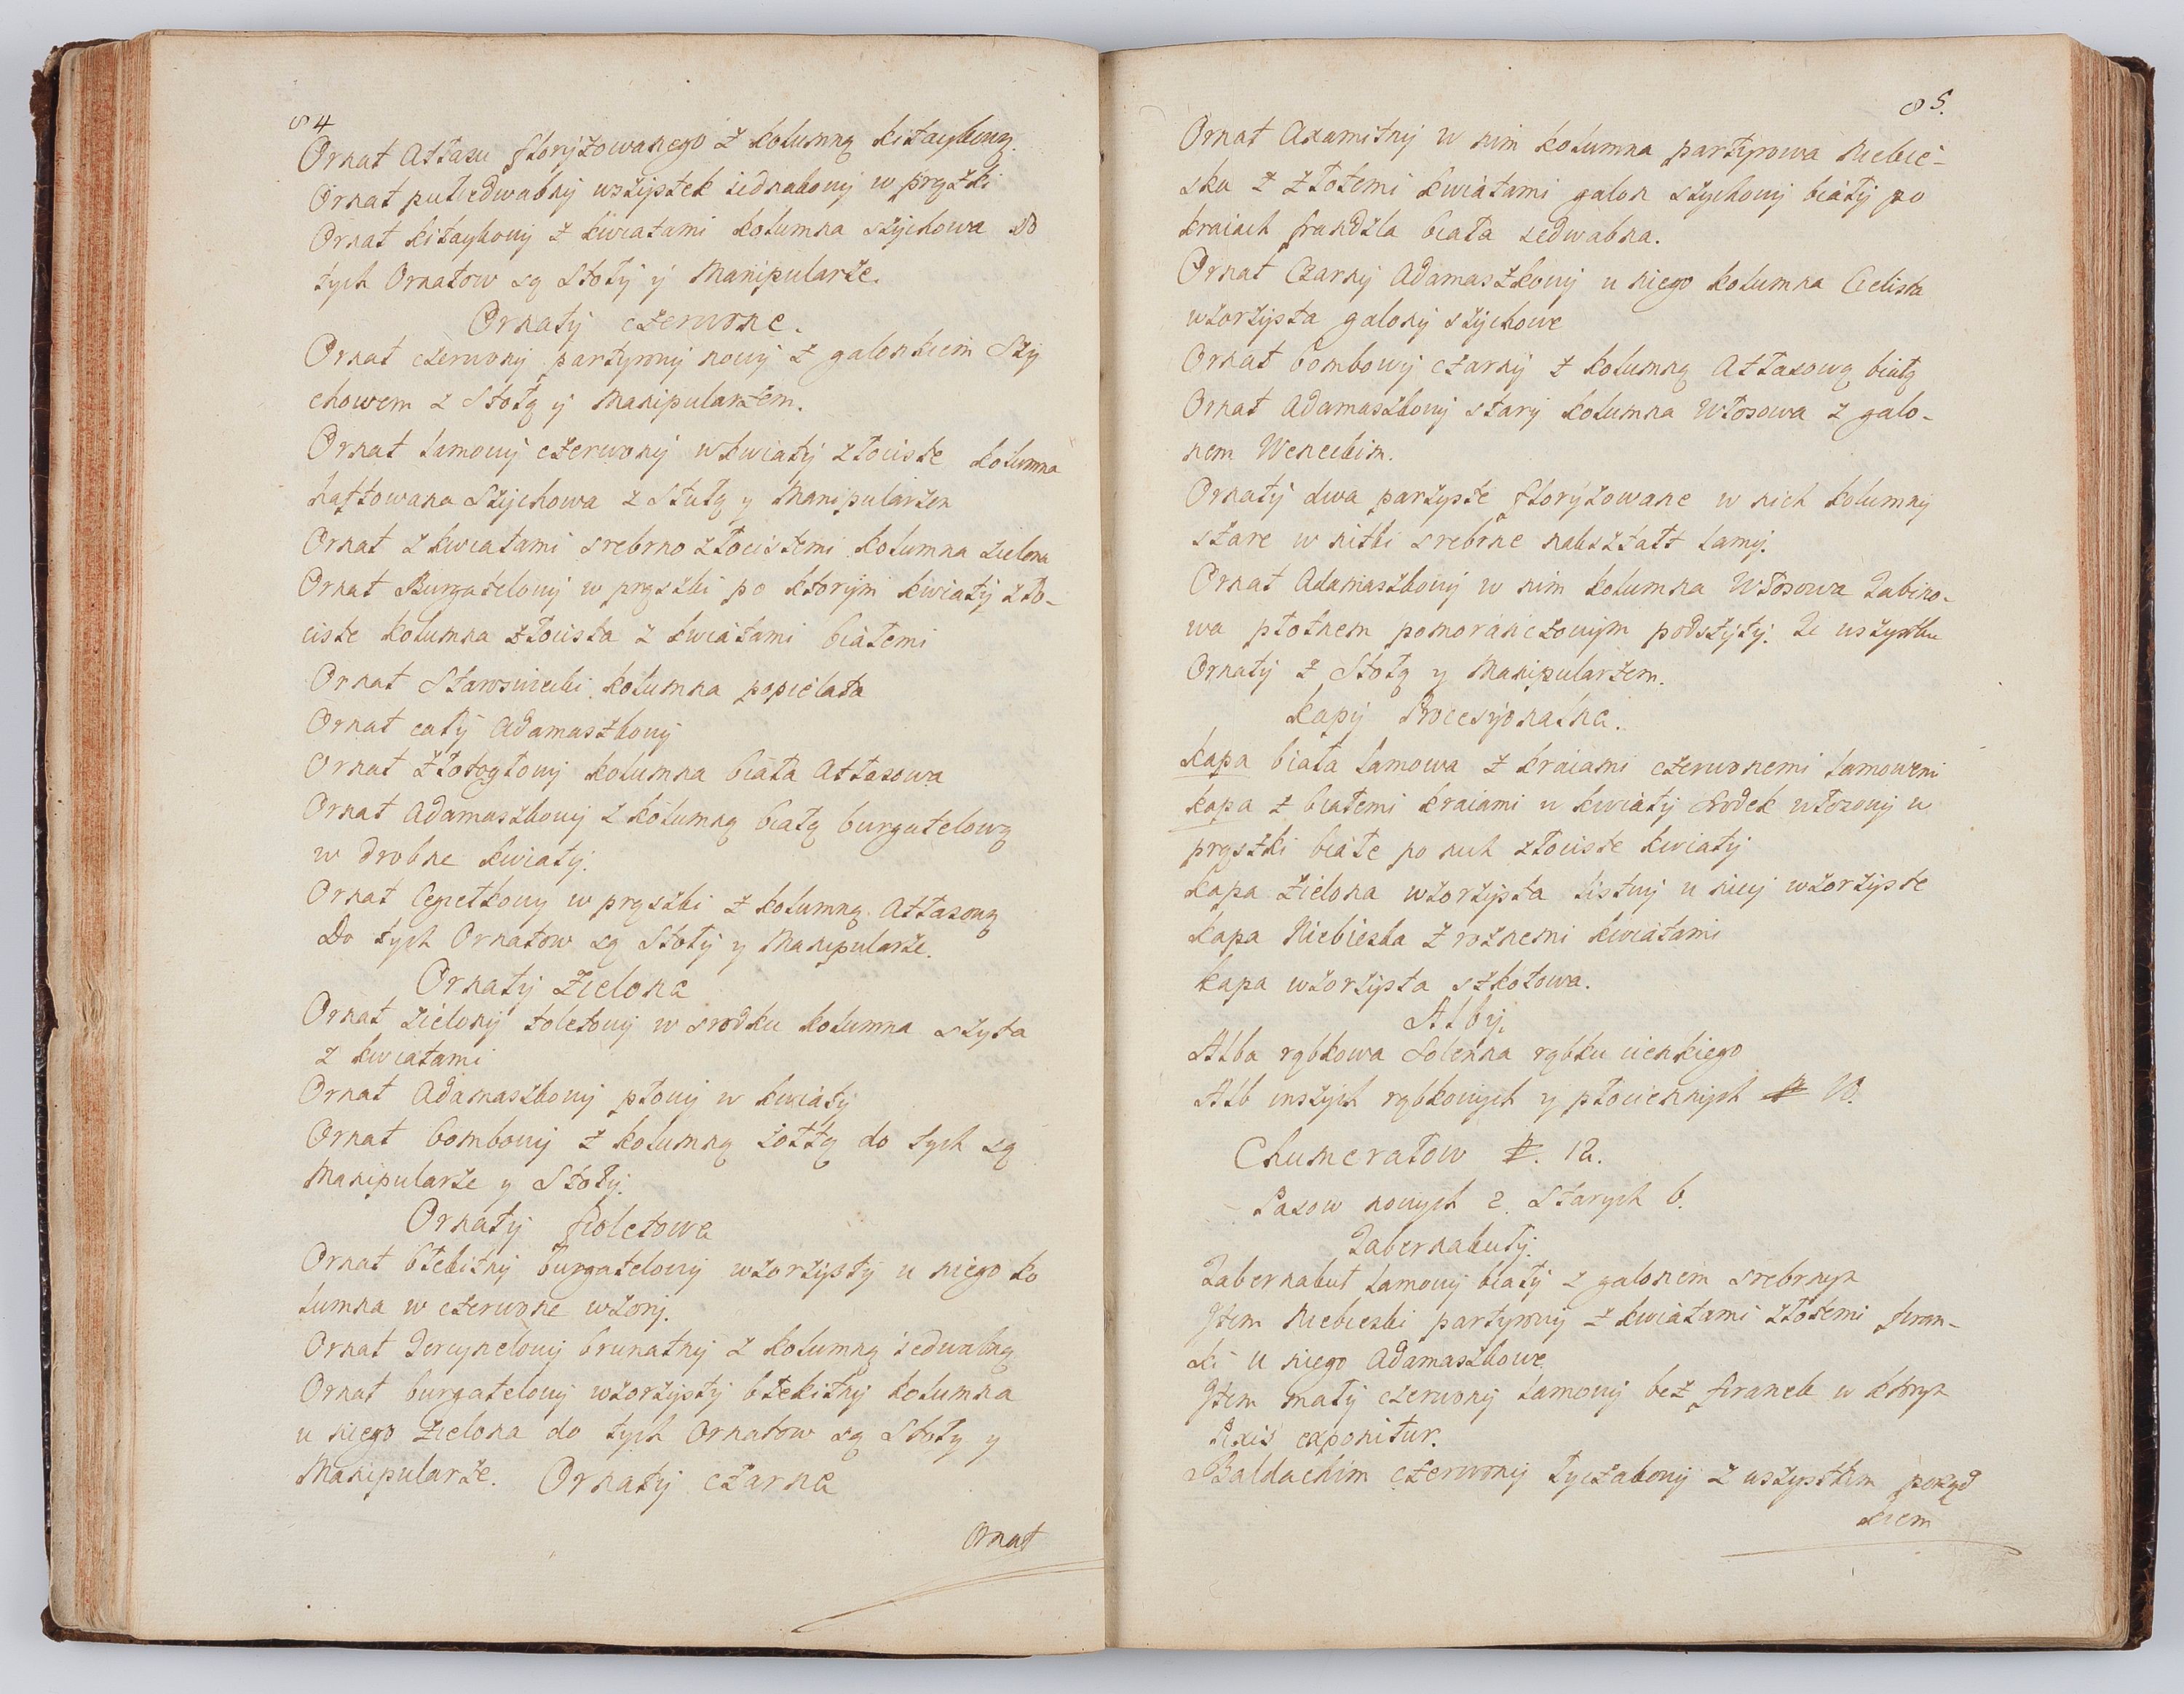 84
Ornat Attasu florÿzowanego z kolumną kitaykową.
Ornat pułiedwabnÿ wszÿstek iednakowÿ w prążki
Ornat kitaykowÿ z kwiatami kolumna szÿchowa do
tych Ornatow są Stołÿ ÿ Manipularze.
Ornatÿ czerwone.
Ornat czerwonÿ partÿrowÿ nowÿ z galonkiem Szÿ
chowem z Stołą ÿ Manipularzem.
Ornat lamowÿ czerwonÿ w kwiatÿ złociste kolumna
haftowana Szÿchowa z Stułą y Manipularzem
Ornat z kwiatami srebrno złocistemi kolumna zielona
Ornat Burgatelowÿ w prąszki po ktorÿm kwiatÿ zło-
ciste kolumna złocista z kwiatami białemi
Ornat Staroswiecki kolumna popielata
Ornat całÿ Adamaszkowÿ
Ornat złotogłowÿ kolumna biała Attasowa
Ornat Adamaszkowÿ z kolumną białą burgatelową
w drobne kwiatÿ.
Ornat Cegietkowy w prąszki z kolumną Attasową
Do tych Ornatow są Stołÿ y Manipularze.
Ornatÿ Zielone
Ornat zielonÿ toletowÿ w srodku kolumna szyta
z kwiatami
Ornat Adamaszkowÿ płowÿ w kwiatÿ
Ornat bombowÿ z kolumną żołtą do tych są
Manipularze y Stołÿ.
Ornatÿ fioletowe
Ornat błekitnÿ burgatelowÿ wzorzÿstÿ u niego ko
lumna w czerwone wzorÿ.
Ornat Tercynelowÿ brunatnÿ z kolumną iedwabną
Ornat burgatelowÿ wzorzÿstÿ błekitnÿ kolumna
u niego zielona do tych Ornatow są Stoły y
Manipularze. Ornatÿ czarne
Ornat
85.
Ornat Axamitnÿ w nim kolumna partÿrowa Niebie-
ska z złotemi kwiatami galon szychowÿ białÿ po
kraiach frandzla biała iedwabna.
Ornat Czarnÿ Adamaszkowÿ u niego kolumna Cielista
wzorzÿsta galonÿ szÿchowe
Ornat bombowÿ czarnÿ z kolumną Attasową białą
Ornat Adamaszkowÿ starÿ kolumna Włosowa z galo-
nem Weneckim.
Ornatÿ dwa parzyste florÿzowane w nich kolumnÿ
stare w nitki srebrne nakształt lamÿ.
Ornat Adamaszkowÿ w nim kolumna Włosowa Tabino-
wa płotnem pomoranczowÿm podszÿtÿ. Te wszystkie
Ornatÿ z Stołą y Manipularzem.
Kapÿ Procesÿonalne.
Kapa biała lamowa z kraiami czerwonemi lamowemi
Kapa z białemi kraiami w kwiatÿ srodek włozonÿ w
prąszki białe po nich złociste kwiatÿ
Kapa zielona wzorzÿsta listwÿ u niey wzorzÿste
Kapa Niebieska z roznemi kwiatami
Kapa wzorzÿsta szkotowa.
Albÿ.
Alba rąbkowa Solenna rąbku cienkiego
Alb inszÿch rąbkowÿch y płociennÿch
Chumeratow N. 12.
Pasow nowych 2. Starych 6.
Tabernakułÿ.
Tabernakuł lamowÿ białÿ z galonem srebrnÿm
Item Niebieski partyrowÿ z kwiatami złotemi firan-
ki u niego Adamaszkowe.
Item małÿ czerwonÿ lamowÿ bez firanek w ktorÿm
Pixis exponitur.
Baldachim czerwonÿ tyczakowÿ z wszystkim porząd
kiem